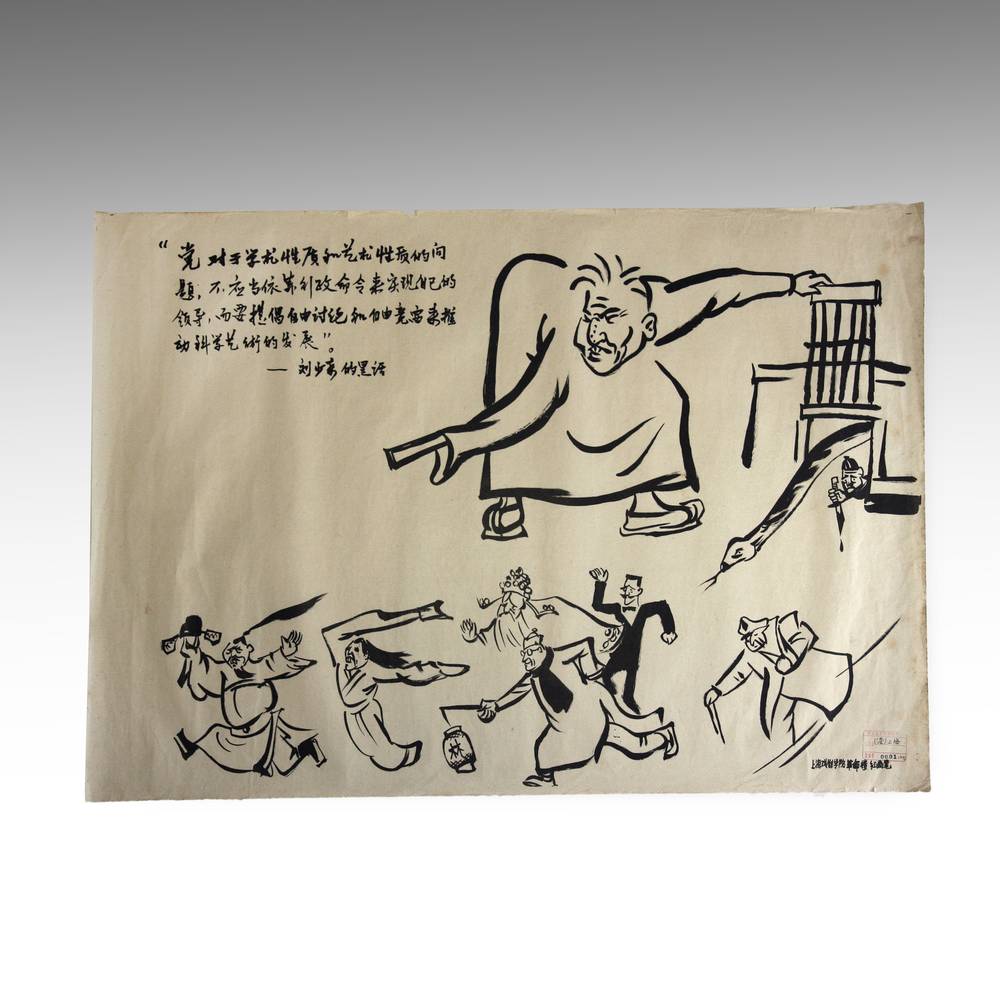 “党对于学术性质和艺术性质的问
题，不应当依靠行政命令来实现自己的
领导，而要提倡自由讨论和自由竞赛来推
动科学艺術的发展”。
— 刘少奇的黑话
林
上海戏剧学院 革命楼 红画笔
0001